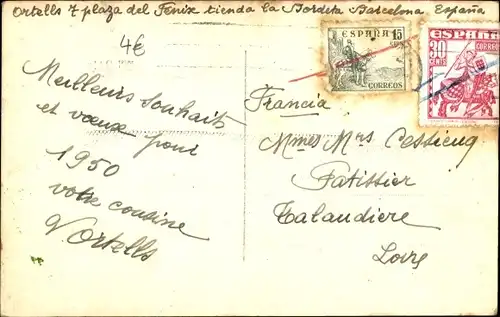 Ortells 7 plaza del Fenix tienda la Bordeta Barcelona España
4€
ESPAÑA
15
CENTS
CORREOS
ESPAÑA
30
CENTS
CORREOS
Meilleurs souhaits
et vœux pour
1950
votre cousine
V Ortells
Francia
Mmes Mrs Cessieng
Patissier
Talaudiere
Loire